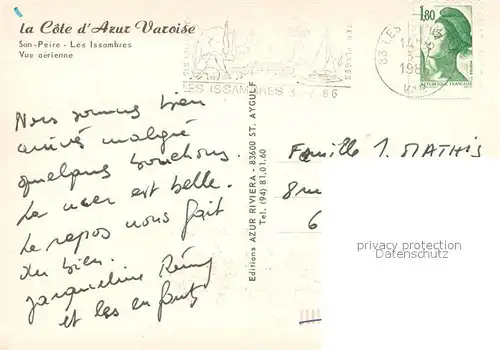 la Côte d'Azur Varoise
San-Peire - Les Issambres
Vue aérienne
LES ISSAMBRES 3-7 86
83 LES
14
3
198
VAR
1,80
Nous sommes bien
arrivés malgré
quelques bouchons.
La mer est belle.
Le repos nous fait
du bien.
Jacqueline Rémy
et les enfants
Editions AZUR RIVIERA - 83600 ST. AYGULF
Tel. (94) 81.01.60
Famille J. MATHIS
8 rue
6
privacy protection
Datenschutz